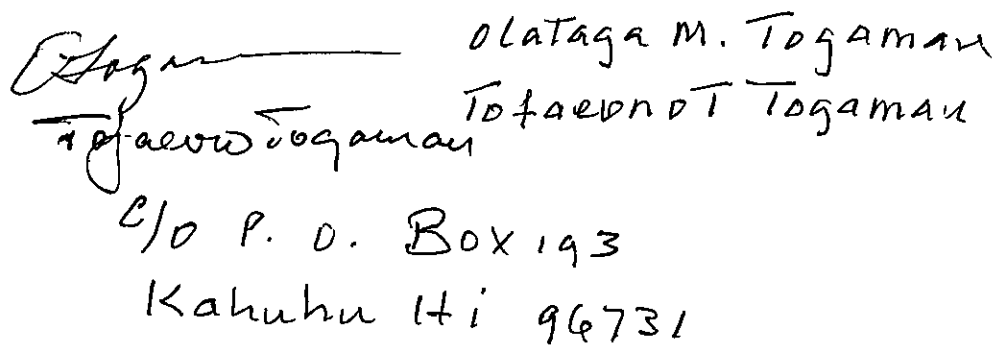 Olataga M. Togamau
Tofaeono T Togamau
Tofaeono Togamau
c/o P. O. Box 193
Kahuku Hi 96731